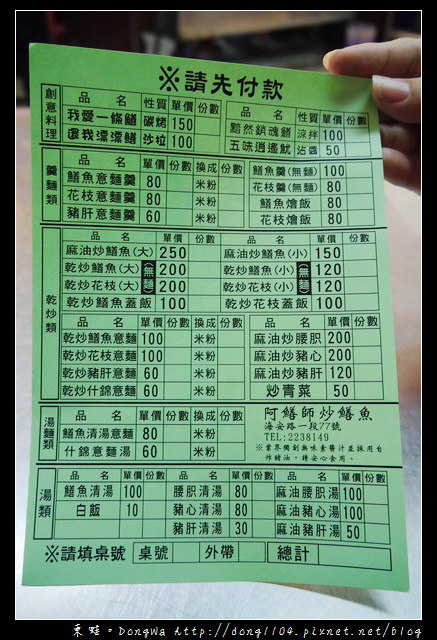 ※請先付款
創意料理
品名 性質 單價 份數
我愛一條鱔 碳烤 150
還我漂漂鱔 沙拉 100
品名 性質 單價 份數
黯然銷魂鱔 涼拌 100
五味逍遙魷 沾醬 50
羹麵類
品名 單價 份數 換成 份數
鱔魚意麵羹 80 米粉
花枝意麵羹 80 米粉
豬肝意麵羹 60 米粉
鱔魚羹(無麵) 100
花枝羹(無麵) 80
鱔魚燴飯 100
花枝燴飯 100
乾炒類
品名 單價 份數
麻油炒鱔魚(大) 250
乾炒鱔魚(大) (無麵) 200
乾炒花枝(大) 200
乾炒鱔魚蓋飯 100
品名 單價 份數
麻油炒鱔魚(小) 150
乾炒鱔魚(小) (無麵) 120
乾炒花枝(小) 120
乾炒花枝蓋飯 100
品名 單價 份數 換成 份數
乾炒鱔魚意麵 100 米粉
乾炒花枝意麵 100 米粉
乾炒豬肝意麵 60 米粉
乾炒什錦意麵 60 米粉
品名 單價 份數
麻油炒腰胘 200
麻油炒豬心 200
麻油炒豬肝 120
炒青菜 50
湯麵類
品名 單價 份數 換成 份數
鱔魚清湯意麵 80 米粉
什錦意麵湯 60 米粉
阿鱔師炒鱔魚
海安路一段77號
TEL:2238149
※業界獨創無味素醬汁並採用自
炸豬油,請安心食用。
湯類
品名 單價 份數
鱔魚清湯 100
白飯 10
品名 單價 份數
腰胘清湯 80
豬心清湯 80
豬肝清湯 30
品名 單價 份數
麻油腰胘湯 100
麻油豬心湯 100
麻油豬肝湯 50
※請填桌號 桌號 外帶 總計
東蛙。DongWa http://dong1104.pixnet.net/blog